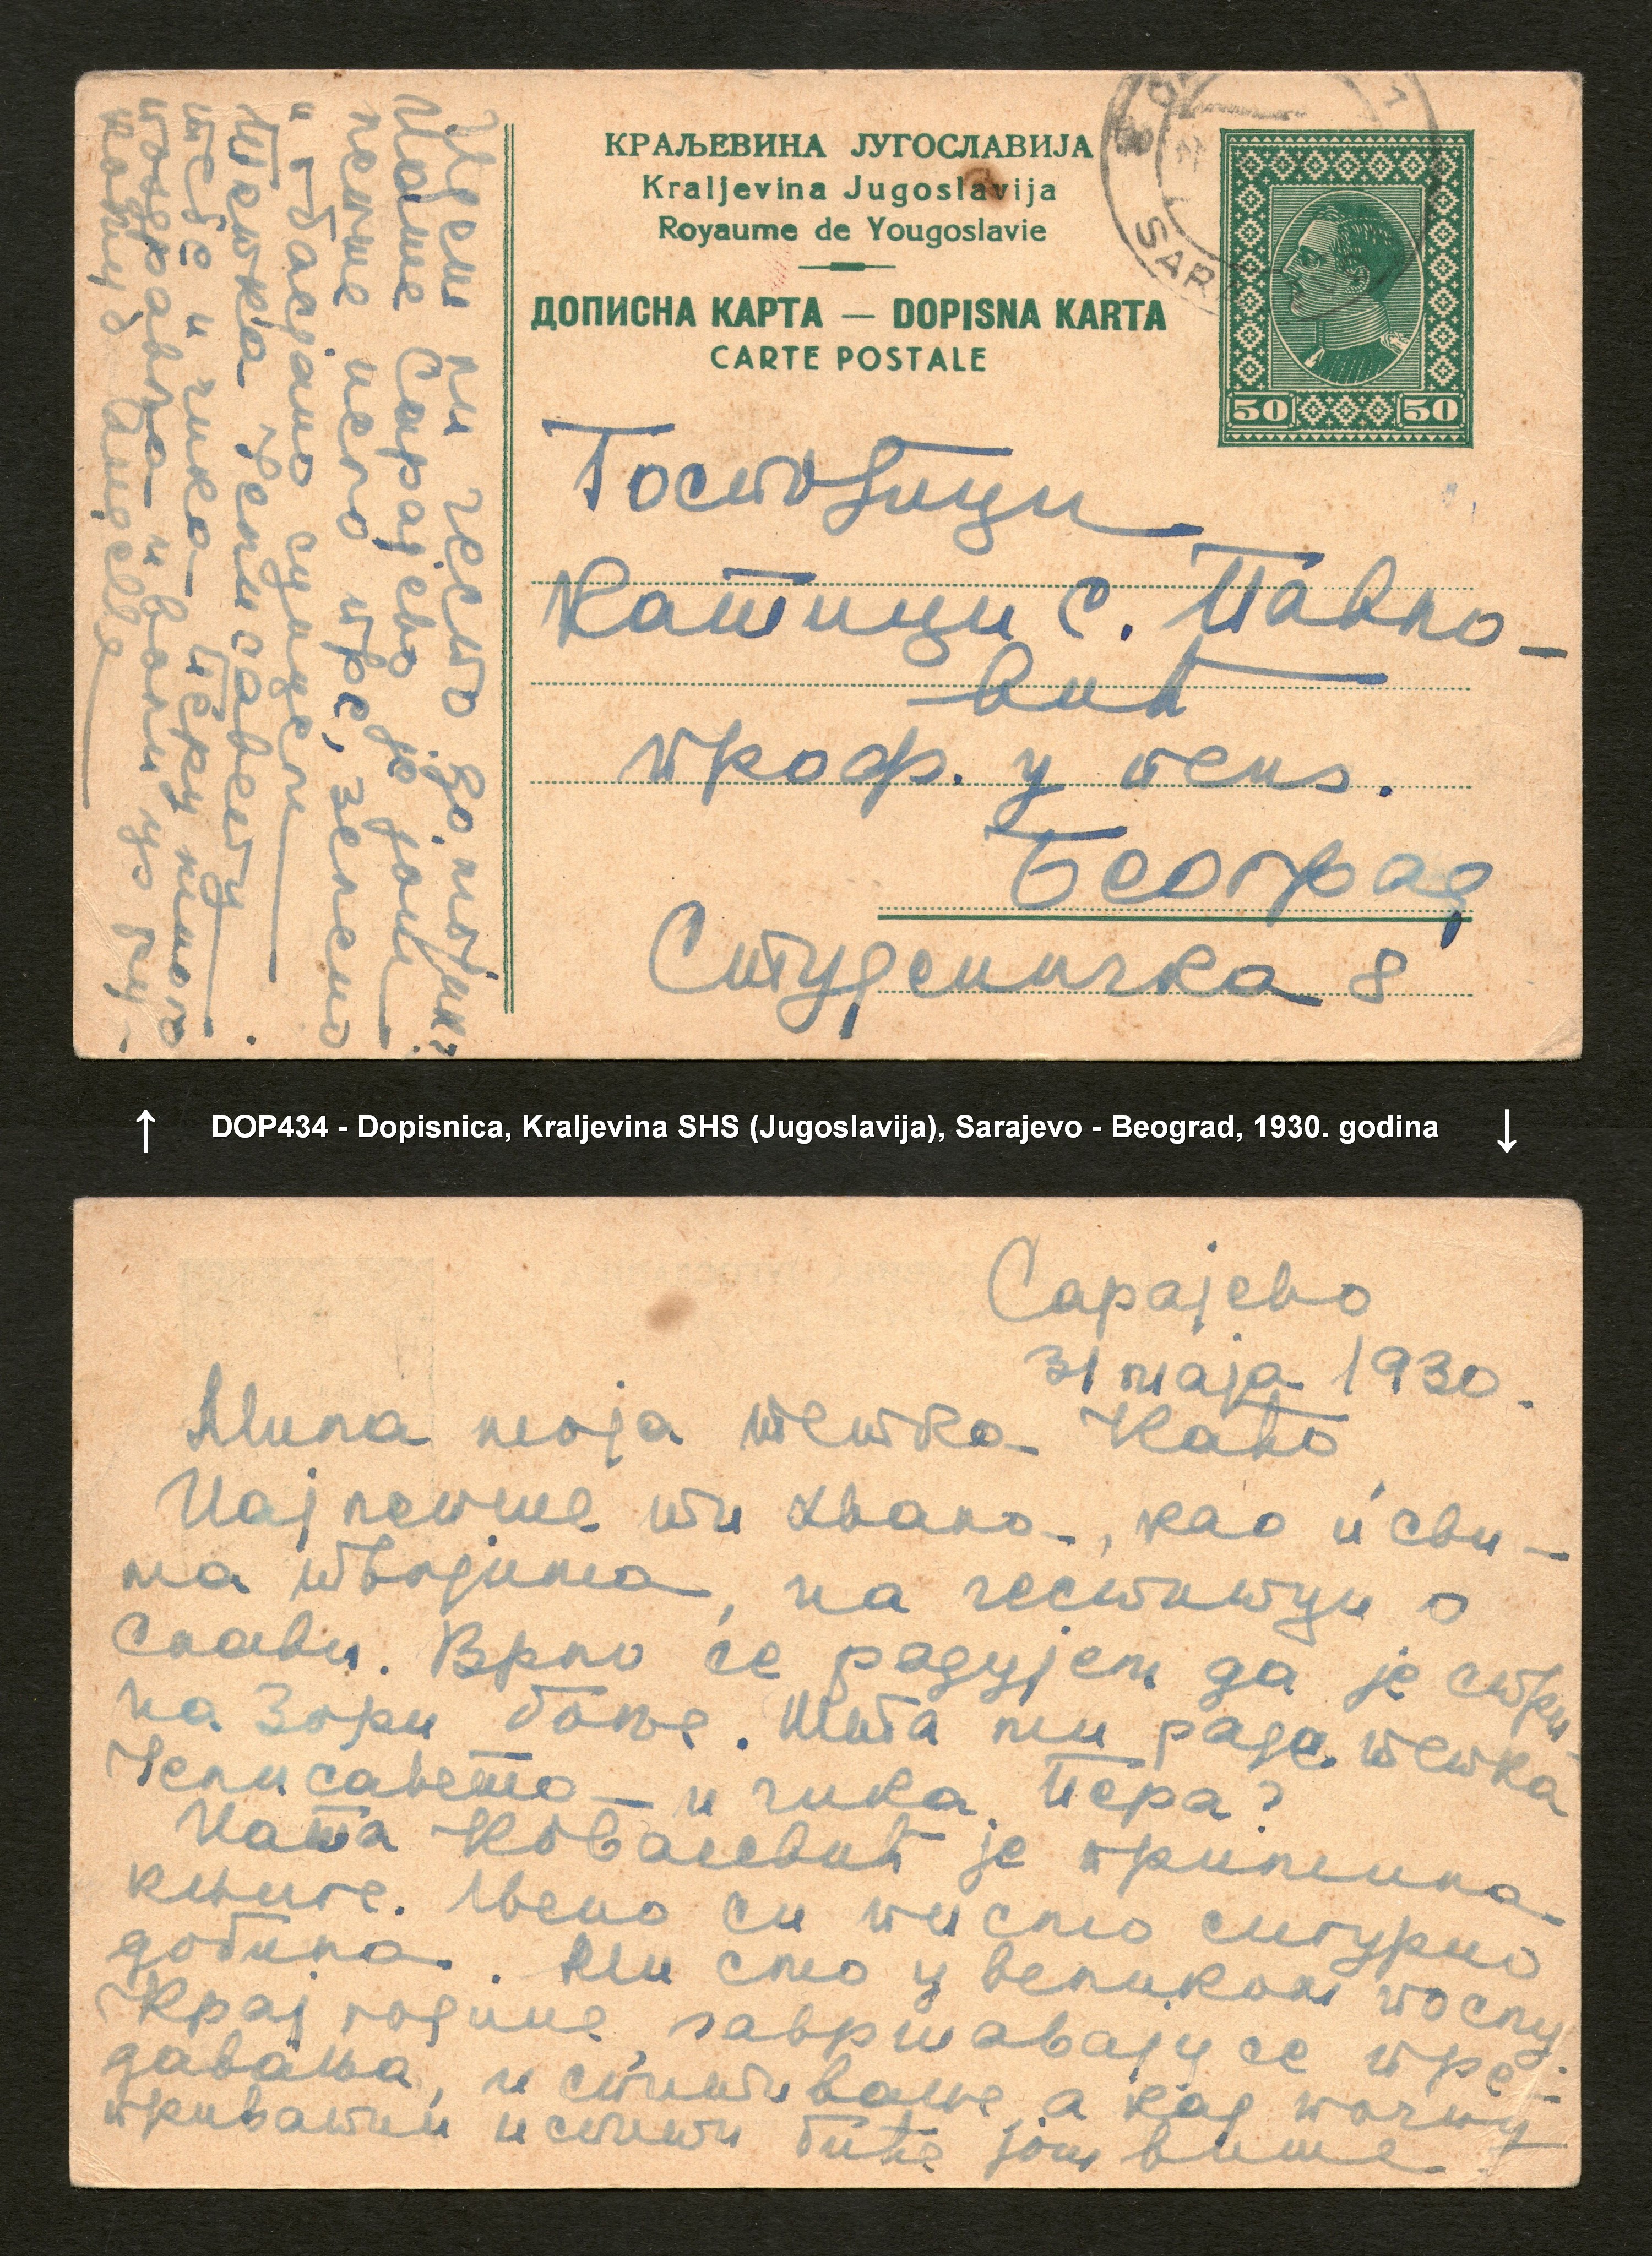 КРАЉЕВИНА ЈУГОСЛАВИЈА
Kraljevina Jugoslavija
Royaume de Yougoslavie
ДОПИСНА КАРТА — DOPISNA KARTA
CARTE POSTALE
SAR
50 50
Госпођици
Катици С. Павло-
вић
проф. у пенз.
Београд
Студеничка 8
Идеш ли често до мајке?
Наше Сарајево је још
лепше него пре, зелено
и обасјано сунцем
Тетка Јелисавету
тебе и чика Перу много
поздравља и воли уз ру-
кољуб
↑ DOP434 - Dopisnica, Kraljevina SHS (Jugoslavija), Sarajevo - Beograd, 1930. godina ↓
Сарајево
31 маја 1930.
Мила моја тетка Като
Најлепше ти хвала, као и сви-
ма твојима, на честитци о
Слави. Врло се радујем да је стри-
на Зори боље. Шта ми раде тетка
Јелисавета и чика Пера?
Ната Ковачевић је примила
књиге. Њено си писмо сигурно
добила. Ми смо у великом послу.
Крај године, завршавају се пре-
давања, и испитивање, а кад почну
приватни испити биће још више